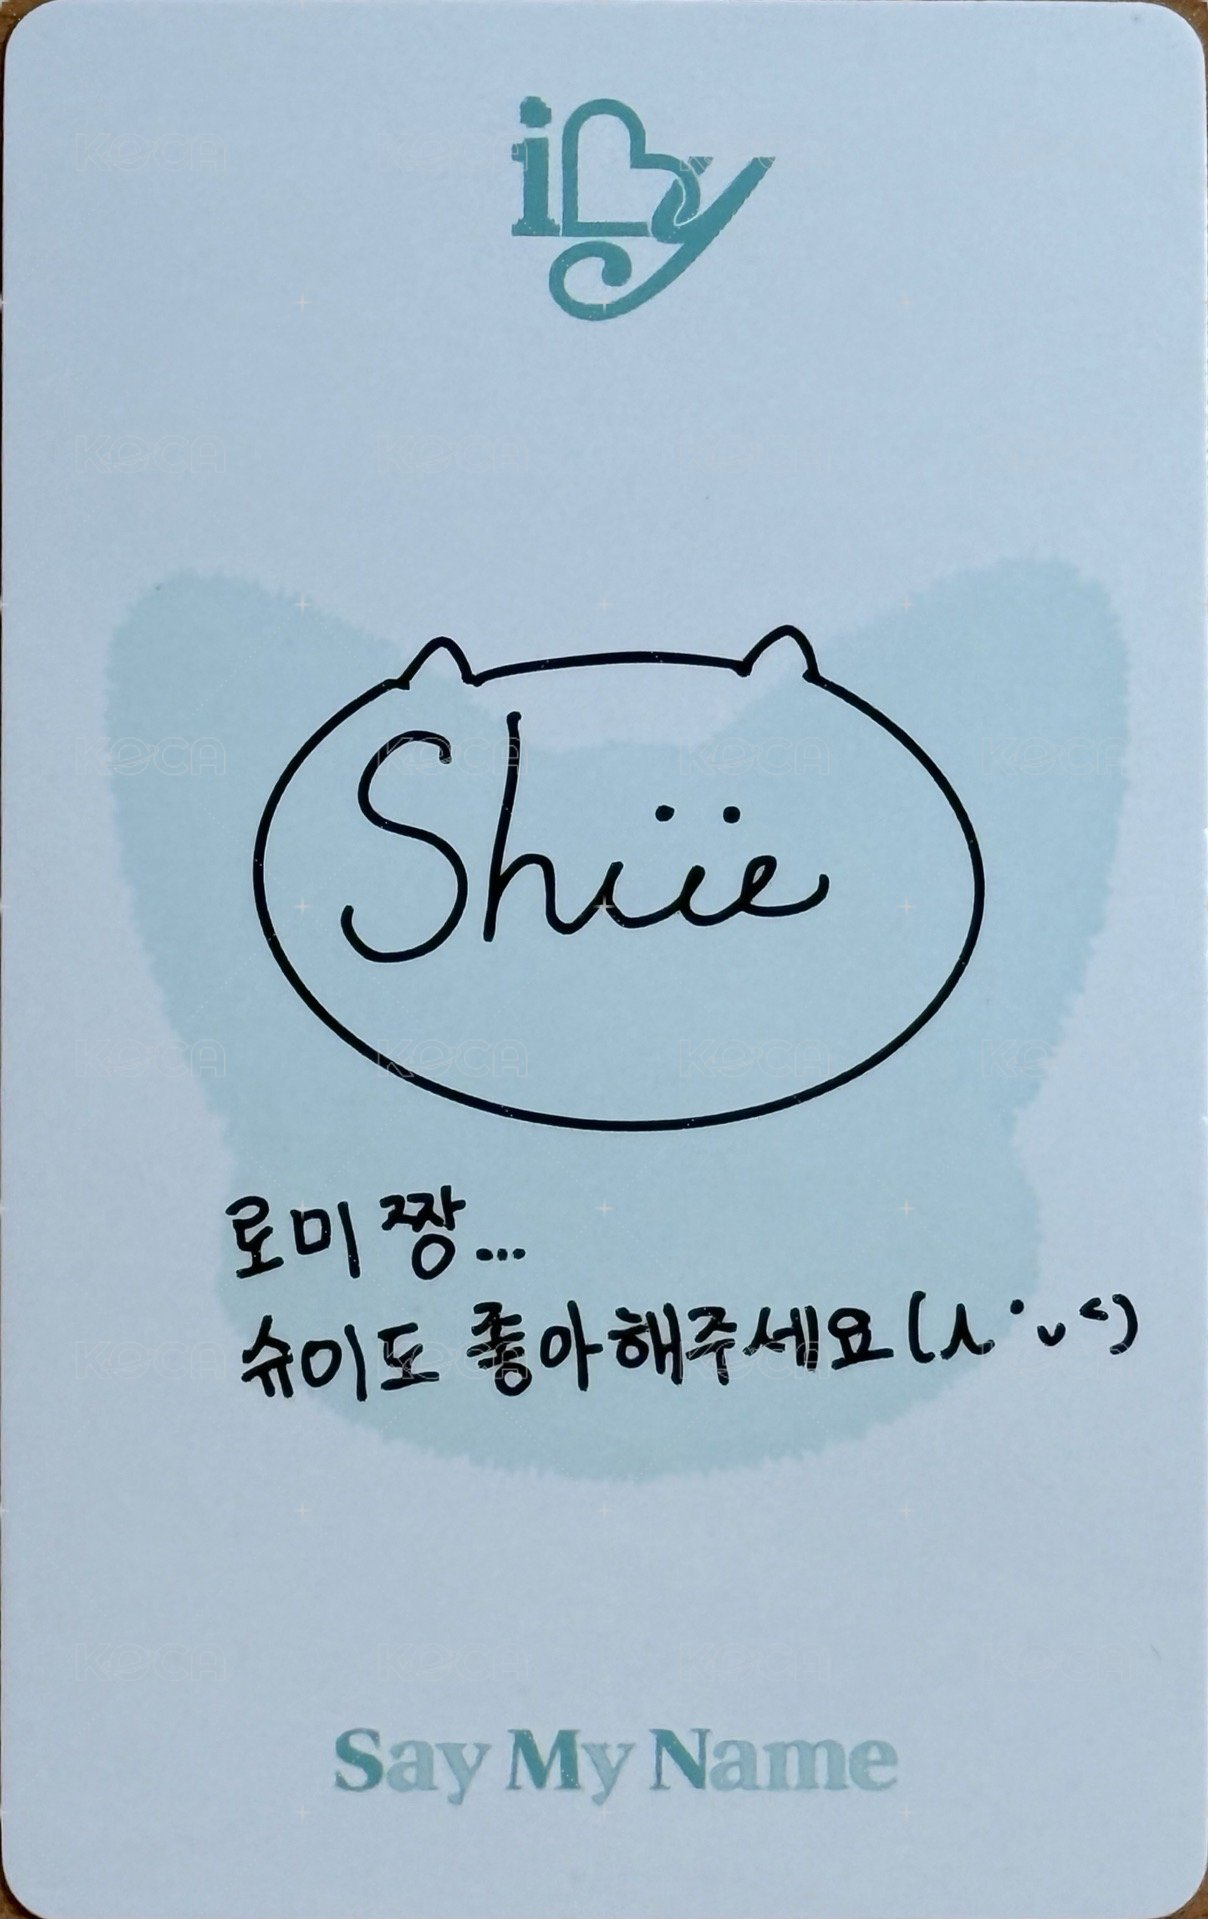 iLy
Shiie
로미 짱...
슈이도 좋아해주세요(ㅅ•ᴗ<)
Say My Name